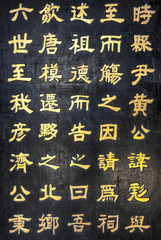 時縣尹黃公諱彪與
至而觴之因請為祠
述祖德而告之曰吾
歙唐模遷黟之北鄉
六世至我彥濟公秉